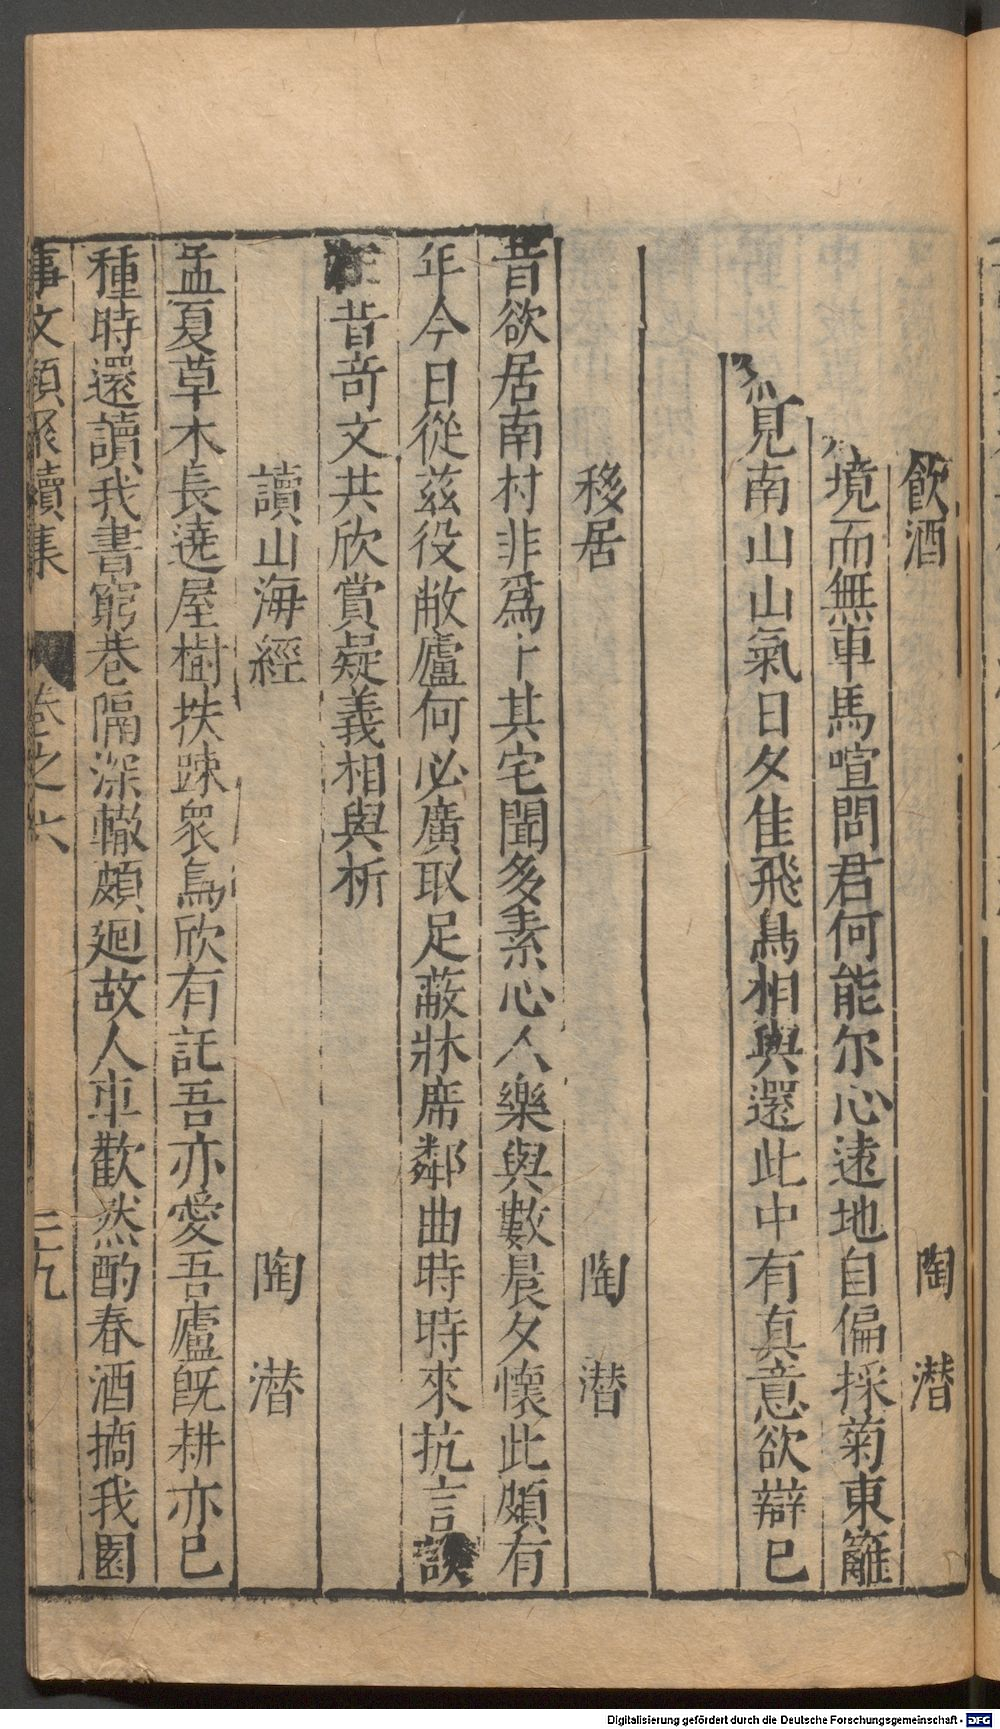 飲酒 陶潜
境而無車馬喧問君何能尔心遠地自偏採菊東籬
見南山山氣日夕佳飛鳥相與還此中有真意欲辯已
移居 陶潜
昔欲居南村非爲卜其宅聞多素心人樂與數晨夕懷此頗有
年今日從茲役敝廬何必廣取足蔽牀席鄰曲時時來抗言談
在昔奇文共欣賞疑義相與析
讀山海經 陶潜
孟夏草木長遶屋樹扶踈衆鳥欣有託吾亦愛吾廬旣耕亦已
種時還讀我書窮巷隔深轍頗迴故人車歡然酌春酒摘我園
事文類聚續集 卷之六 二九
Digitalisierung gefördert durch die Deutsche Forschungsgemeinschaft - DFG